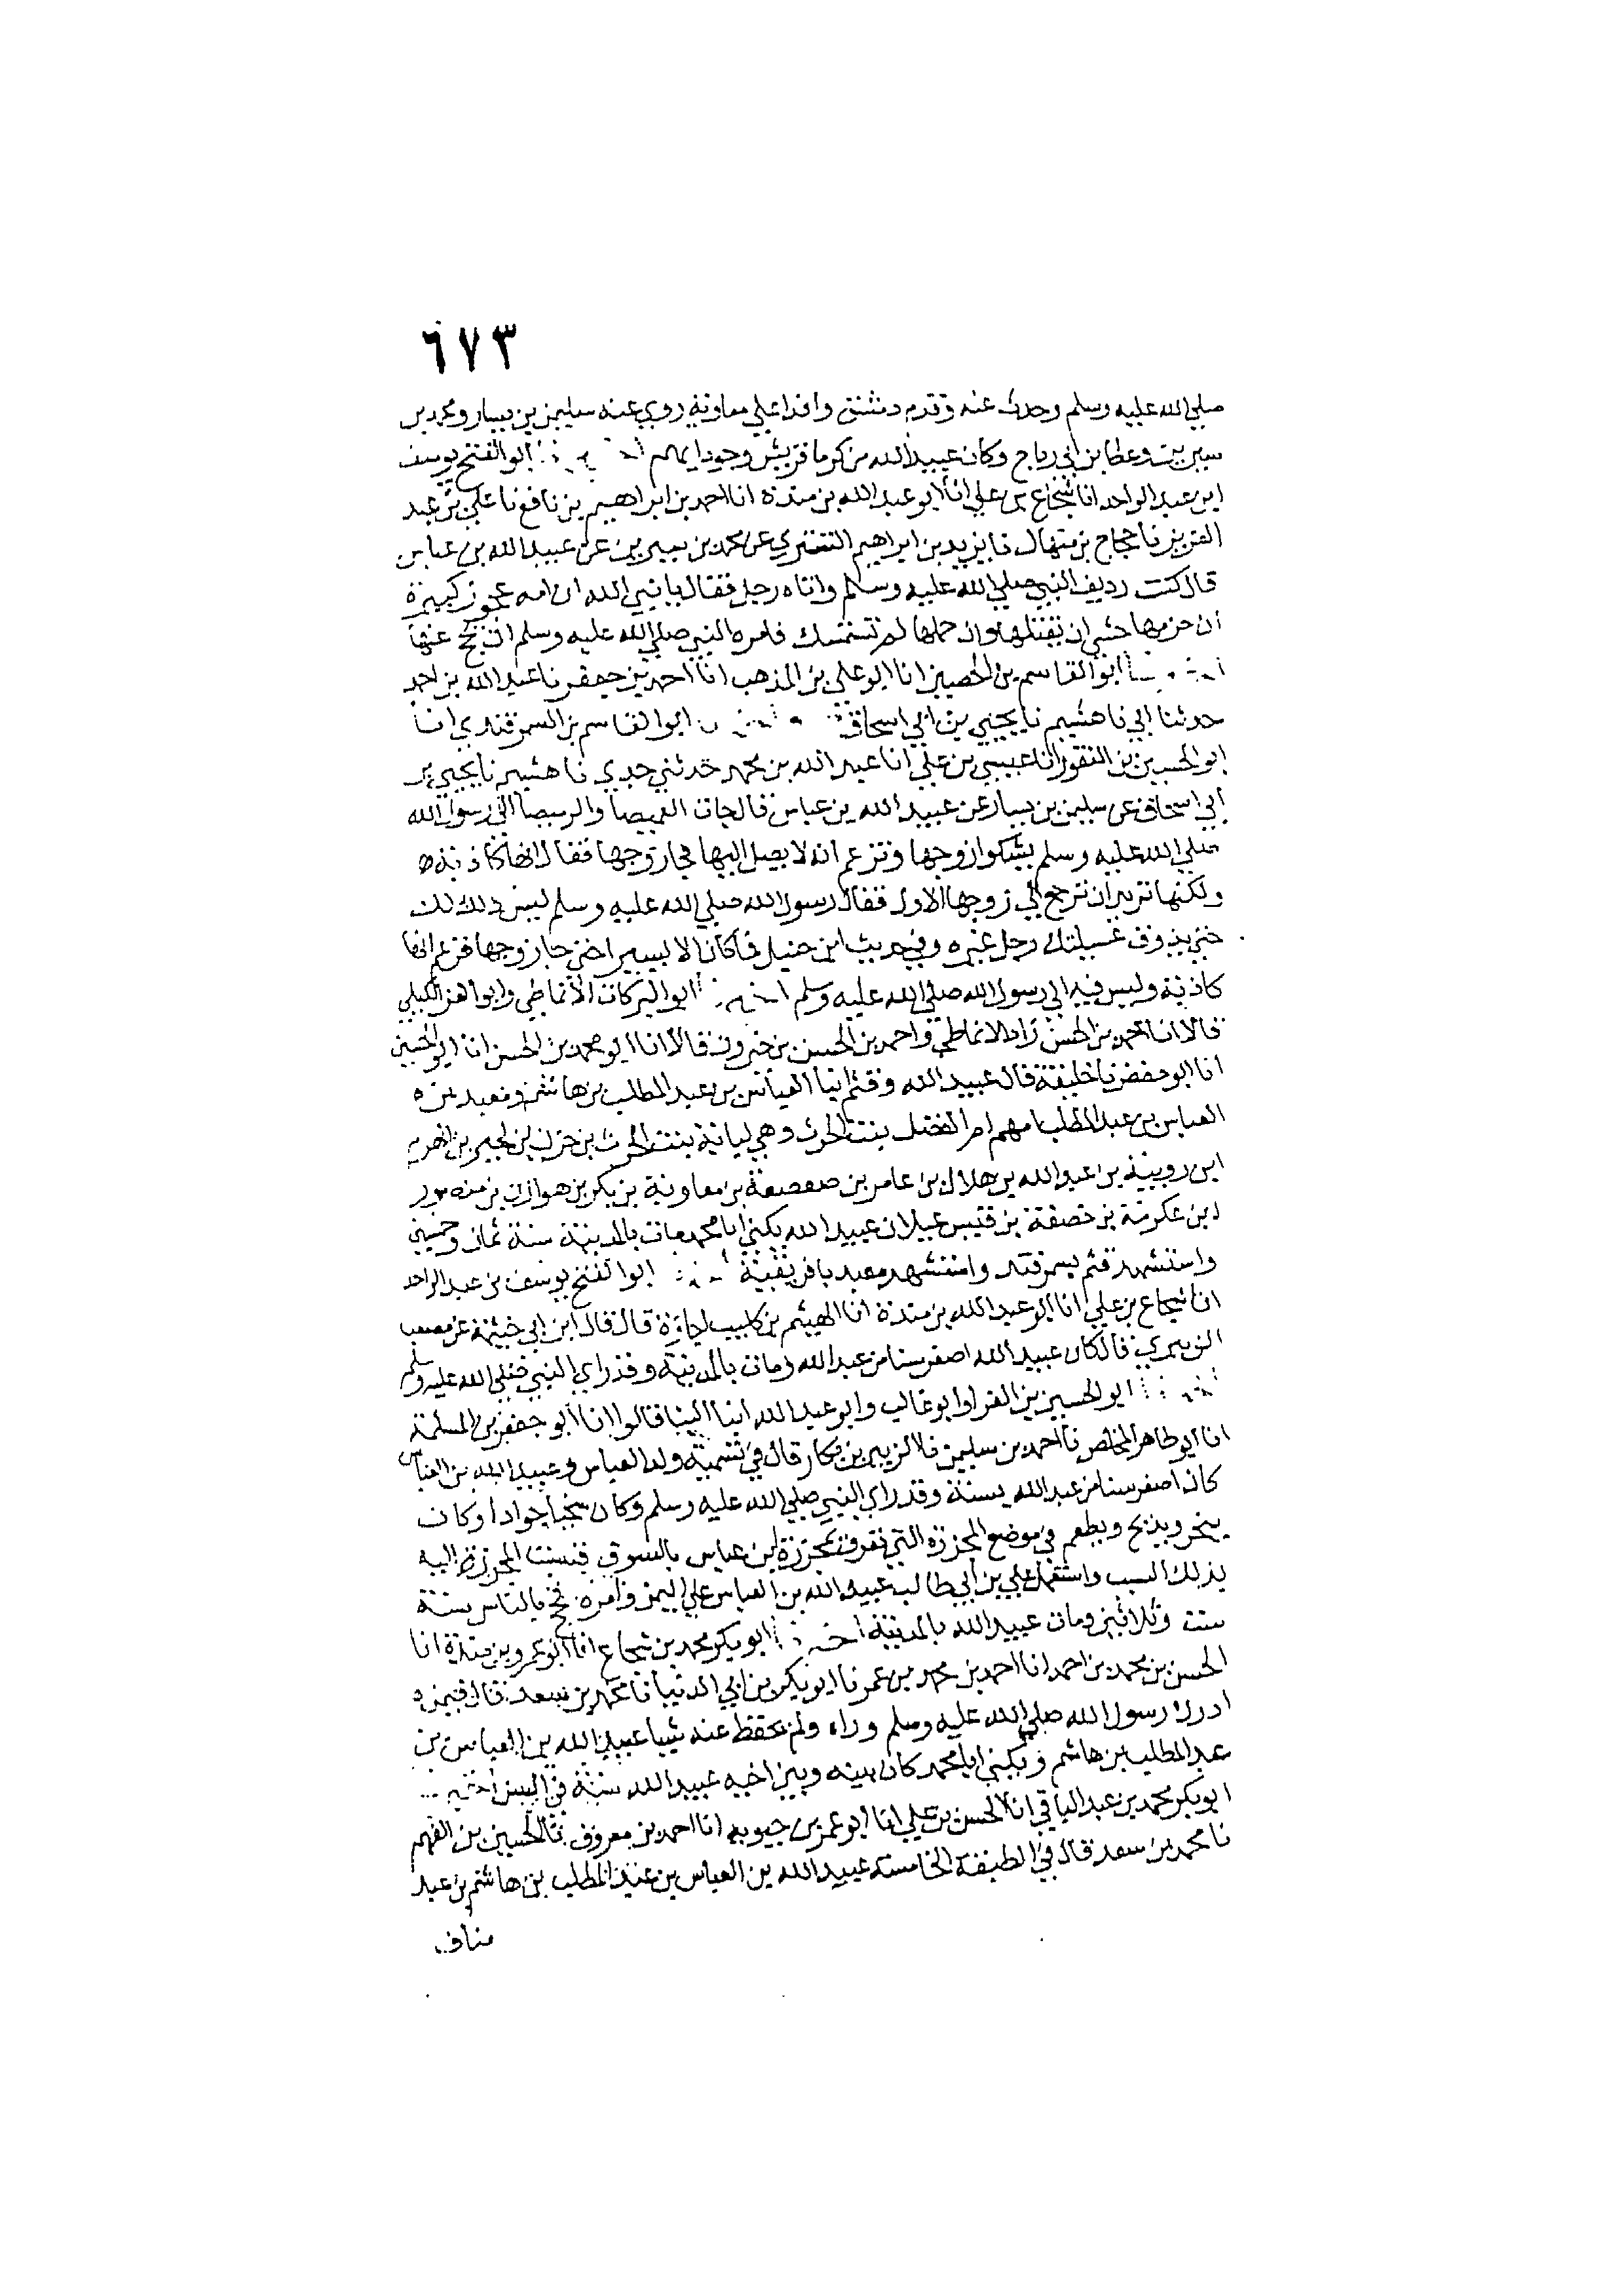 ٦٧٣
صلي الله عليه وسلم وحدث عنه وقدم دمشق وافدا علي معاوية روي عنه سليمن بن يسار ومحمد بن
سيرين وعطا بن ابي رباح وكان عبيد الله من كرما قريش وجودايهم ابو الفتح يوسف
ابن عبد الواحد انا شجاع بن علي انا ابو عبد الله بن مندة انا احمد بن ابراهيم بن نافع نا علي بن عبد
العزيز نا حجاج بن منهال نا يزيد بن ابراهيم التستري عن محمد بن سيرين عن عبيد الله بن عباس
قال كنت رديف النبي صلي الله عليه وسلم واتاه رجل فقال يا نبي الله ان امه عجوز كبيرة
ان حزمها خشي ان يقتلها وان حملها لم تستمسك فامره النبي صلي الله عليه وسلم ان يحج عنها
ابو القاسم بن الحصين انا ابو علي بن المذهب انا احمد بن جعفر نا عبد الله بن احمد
حدثنا ابي نا هشيم نا يحيي بن ابي اسحاق ابو القاسم بن السمرقندي انا
ابو الحسين بن النقور انا عيسي بن علي انا عبد الله بن محمد حدثني جدي نا هشيم نا يحيي بن
ابي اسحاق عن سليمن بن يسار عن عبيد الله بن عباس قال جات الغميصا والرميصا الي رسول الله
صلي الله عليه وسلم يشكوا زوجها وتزعم انه لا يصل اليها فجا زوجها فقال انها كاذبة
ولكنها تريد ان ترجع الي زوجها الاول فقال رسول الله صلي الله عليه وسلم ليس ذلك لك
حتي يذوق عسيلتك رجل غيره وفي حديث ابن حنبل فما كان الا يسيرا حتي جا زوجها فزعم انها
كاذبة وليس فيه الي رسول الله صلي الله عليه وسلم ابو البركات الانماطي وابو العز الكيلي
قالا انا احمد بن الحسن زاد الانماطي واحمد بن الحسن بن خيرون قالا انا ابو محمد بن الحسن انا ابو الحسين
انا ابو حفص نا خليفة قال عبيد الله وقثم ابنا العباس بن عبد المطلب بن هاشم ومعبد بن
العباس بن عبد المطلب امهم ام الفضل بنت الحرث وهي لبابة بنت الحرث بن حزن بن بجير بن الهرم
ابن رويبة بن عبد الله بن هلال بن عامر بن صعصعة بن معاوية بن بكر بن هوازن بن منصور
ابن عكرمة بن خصفة بن قيس عيلان عبيد الله يكني ابا محمد مات بالمدينة سنة ثمان وخمسين
واستشهد قثم بسمرقند واستشهد معبد بافريقية ابو الفتح يوسف بن عبد الواحد
انا شجاع بن علي انا ابو عبد الله بن مندة انا الهيثم بن كليب اجازة قال قال ابن ابي خيثمة عن مصعب
الزبيري قال كان عبيد الله اصغر سنا من عبد الله ومات بالمدينة وقد راي النبي صلي الله عليه وسلم
ابو الحسين بن الفرا وابو غالب وابو عبد الله ابنا البنا قالوا انا ابو جعفر بن المسلمة
انا ابو طاهر المخلص نا احمد بن سليمن نا الزبير بن بكار قال في تسمية ولد العباس وعبيد الله بن العباس
كان اصغر سنا من عبد الله بسنة وقد راي النبي صلي الله عليه وسلم وكان سخيا جوادا وكان
ينحر ويذبح ويطعم في موضع المجزرة التي تعرف بمجزرة ابن عباس بالسوق فنسبت المجزرة اليه
بذلك السبب واستعمل علي بن ابي طالب عبيد الله بن العباس علي اليمن وامره فحج بالناس سنة
ست وثلاثين ومات عبيد الله بالمدينة ابو بكر محمد بن شجاع انا ابو عمرو بن مندة انا
الحسن بن محمد بن احمد انا احمد بن محمد بن عمر نا ابو بكر بن ابي الدنيا نا محمد بن سعد قال فيمن
ادرك رسول الله صلي الله عليه وسلم وراه ولم يحفظ عنه شيا عبيد الله بن العباس بن
عبد المطلب بن هاشم ويكني ابا محمد كان بينه وبين اخيه عبيد الله سنة في السن
ابو بكر محمد بن عبد الباقي انا الحسن بن علي انا ابو عمر بن حيويه انا احمد بن معروف نا الحسين بن الفهم
نا محمد بن سعد قال في الطبقة الخامسة عبيد الله بن العباس بن عبد المطلب بن هاشم بن عبد
مناف